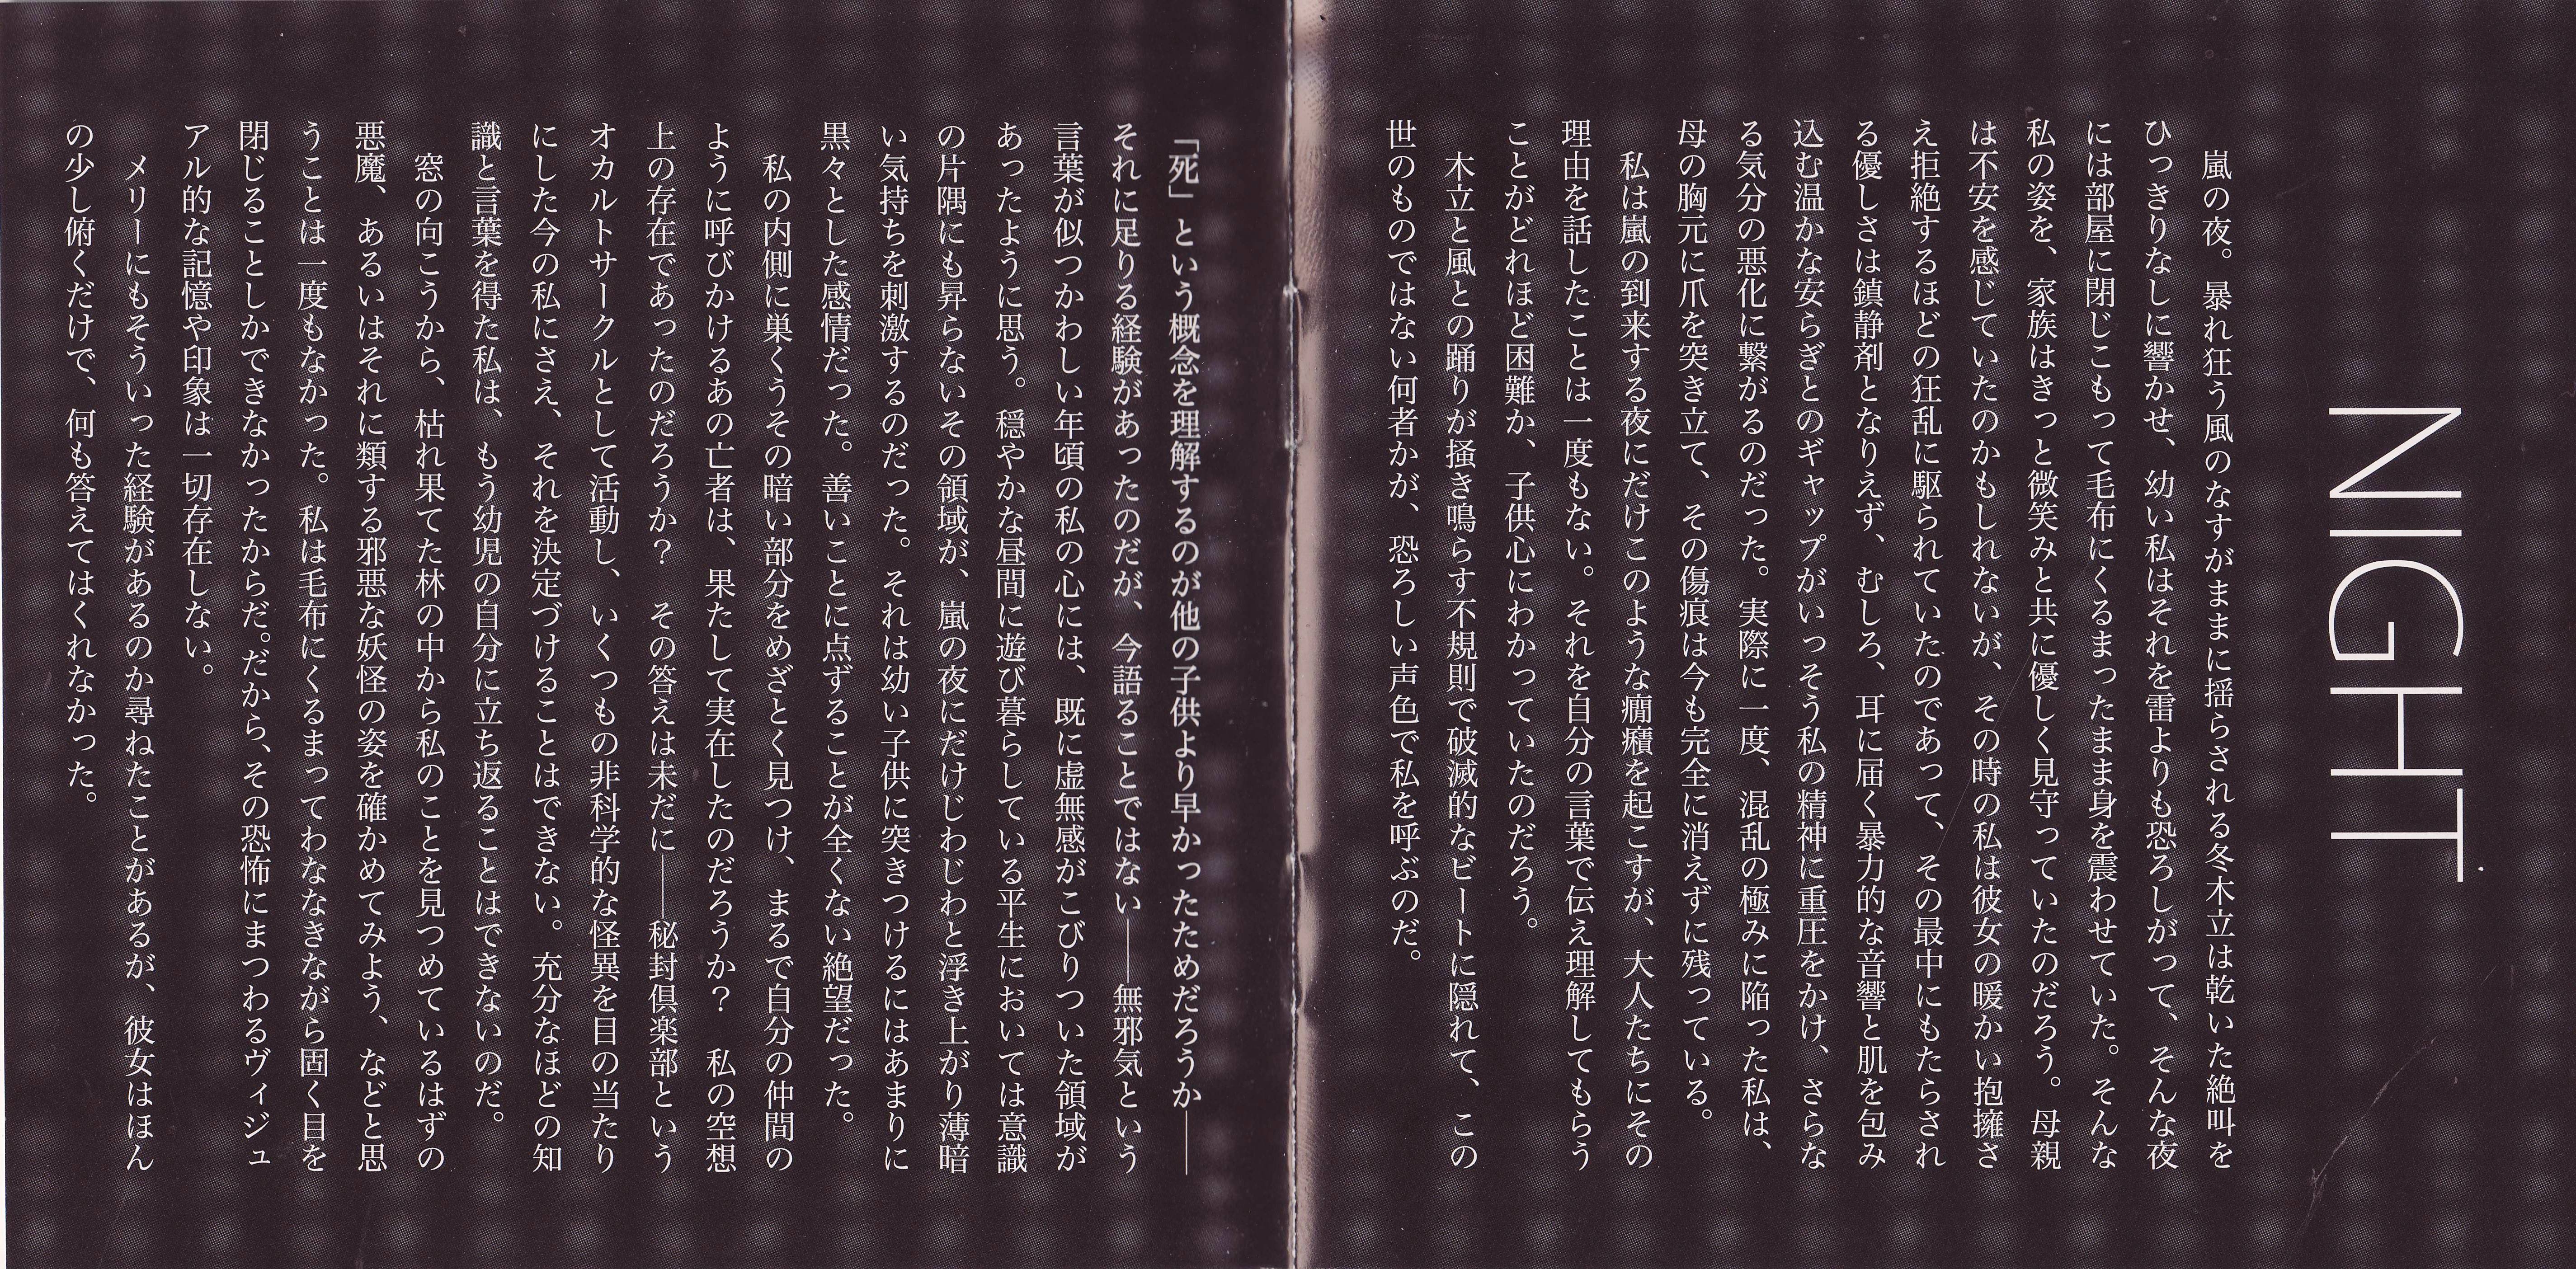 NIGHT
嵐の夜。暴れ狂う風のなすがままに揺らされる冬木立は乾いた絶叫を
ひっきりなしに響かせ、幼い私はそれを雷よりも恐ろしがって、そんな夜
には部屋に閉じこもって毛布にくるまったまま身を震わせていた。そんな
私の姿を、家族はきっと微笑みと共に優しく見守っていたのだろう。母親
は不安を感じていたのかもしれないが、その時の私は彼女の暖かい抱擁さ
え拒絶するほどの狂乱に駆られていたのであって、その最中にもたらされ
る優しさは鎮静剤となりえず、むしろ、耳に届く暴力的な音響と肌を包み
込む温かな安らぎとのギャップがいっそう私の精神に重圧をかけ、さらな
る気分の悪化に繋がるのだった。実際に一度、混乱の極みに陥った私は、
母の胸元に爪を突き立て、その傷痕は今も完全に消えずに残っている。
私は嵐の到来する夜にだけこのような癇癪を起こすが、大人たちにその
理由を話したことは一度もない。それを自分の言葉で伝え理解してもらう
ことがどれほど困難か、子供心にわかっていたのだろう。
木立と風との踊りが掻き鳴らす不規則で破滅的なビートに隠れて、この
世のものではない何者かが、恐ろしい声色で私を呼ぶのだ。
「死」という概念を理解するのが他の子供より早かったためだろうか――
それに足りる経験があったのだが、今語ることではない――無邪気という
言葉が似つかわしい年頃の私の心には、既に虚無感がこびりついた領域が
あったように思う。穏やかな昼間に遊び暮らしている平生においては意識
の片隅にも昇らないその領域が、嵐の夜にだけじわじわと浮き上がり薄暗
い気持ちを刺激するのだった。それは幼い子供に突きつけるにはあまりに
黒々とした感情だった。善いことに点ずることが全くない絶望だった。
私の内側に巣くうその暗い部分をめざとく見つけ、まるで自分の仲間の
ように呼びかけるあの亡者は、果たして実在したのだろうか？　私の空想
上の存在であったのだろうか？　その答えは未だに――秘封倶楽部という
オカルトサークルとして活動し、いくつもの非科学的な怪異を目の当たり
にした今の私にさえ、それを決定づけることはできない。充分なほどの知
識と言葉を得た私は、もう幼児の自分に立ち返ることはできないのだ。
窓の向こうから、枯れ果てた林の中から私のことを見つめているはずの
悪魔、あるいはそれに類する邪悪な妖怪の姿を確かめてみよう、などと思
うことは一度もなかった。私は毛布にくるまってわななきながら固く目を
閉じることしかできなかったからだ。だから、その恐怖にまつわるヴィジュ
アル的な記憶や印象は一切存在しない。
メリーにもそういった経験があるのか尋ねたことがあるが、彼女はほん
の少し俯くだけで、何も答えてはくれなかった。